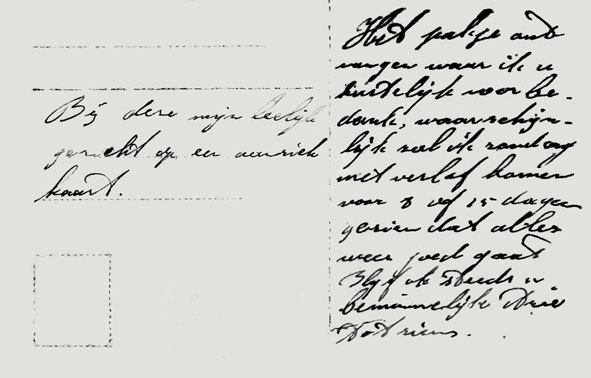 Bij deze mijn leelijk
gezicht op een
kaart.
Het pakje ont
vangen waar ik u
hartelijk voor be-
dank, waarschijn-
lijk zal ik zondag
met verlof komen
voor 8 of 15 dagen
gezien dat alles
weer goed gaat
Blijf ik steeds u